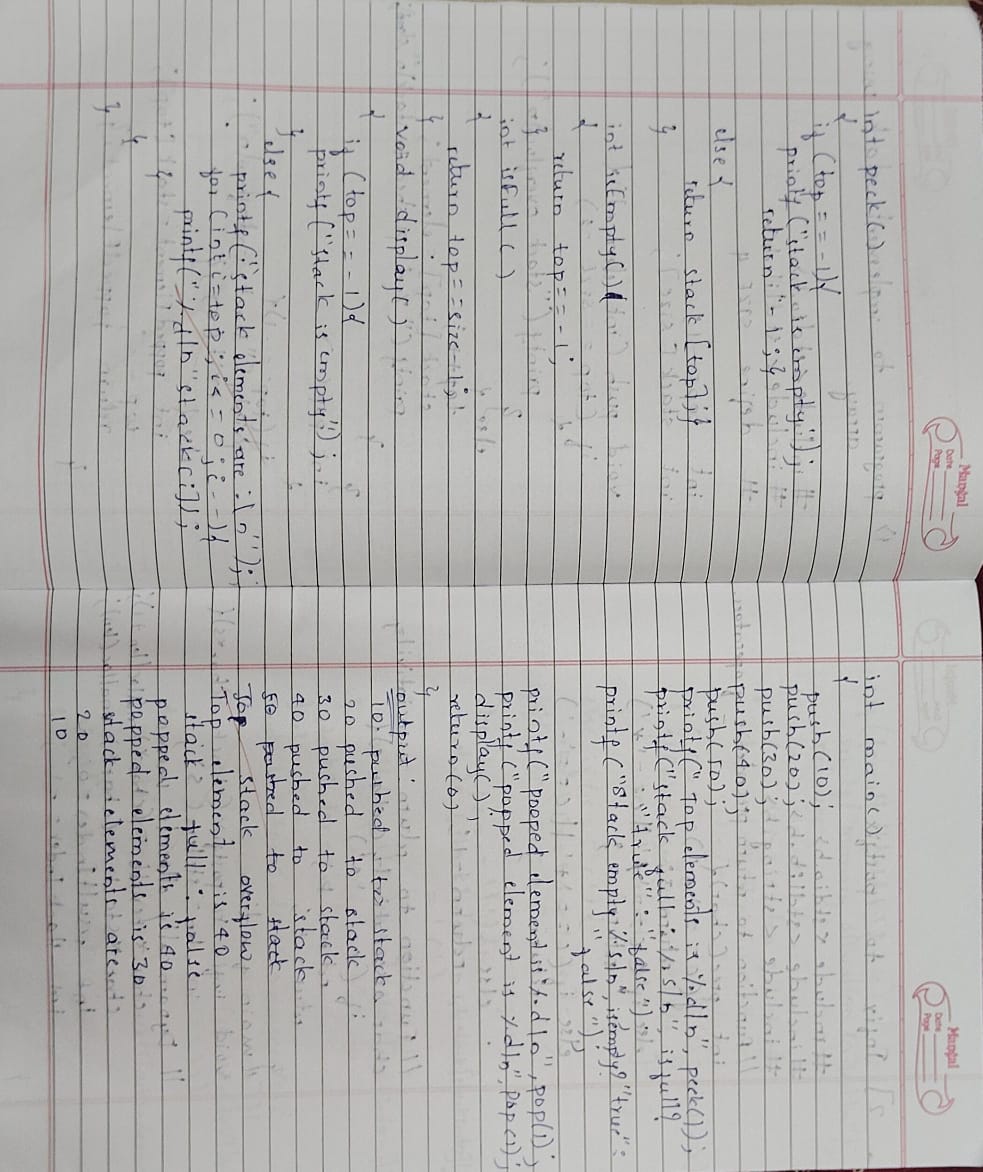 Mangal
Date
Page
int peek()
{
if (top == -1){
printf ("stack is empty");
return -1; }
else {
return stack [top];}
}
int isEmpty()
{
return top == -1;
}
int isfull ()
{
return top == size-1;
}
void display()
{
if (top == -1){
printf ("stack is empty");
}
else {
printf ("stack elements are :\n");
for (int i=top; i<=0; i--){
printf(" %d\n" stack[i]);
}
}
}
Mangal
Date
Page
int main()
{
push (10);
push(20);
push(30);
push(40);
push(50);
printf(" Top elements is %d\n", peek());
printf("stack full: %s\n", isfull?
"true" : "false");
printf ("Stack empty: %s\n", isempty? "true":
"false");
printf("pooped element is %d\n", pop());
printf ("popped element is %d\n", pop());
display();
return(0)
}
output:
10 pushed to stack
20 pushed to stack
30 pushed to stack
40 pushed to stack
50 pushed to stack
Top stack overflow
Top element is 40
stack full : false
popped elements is 40
popped elements is 30
stack elements are
20
10